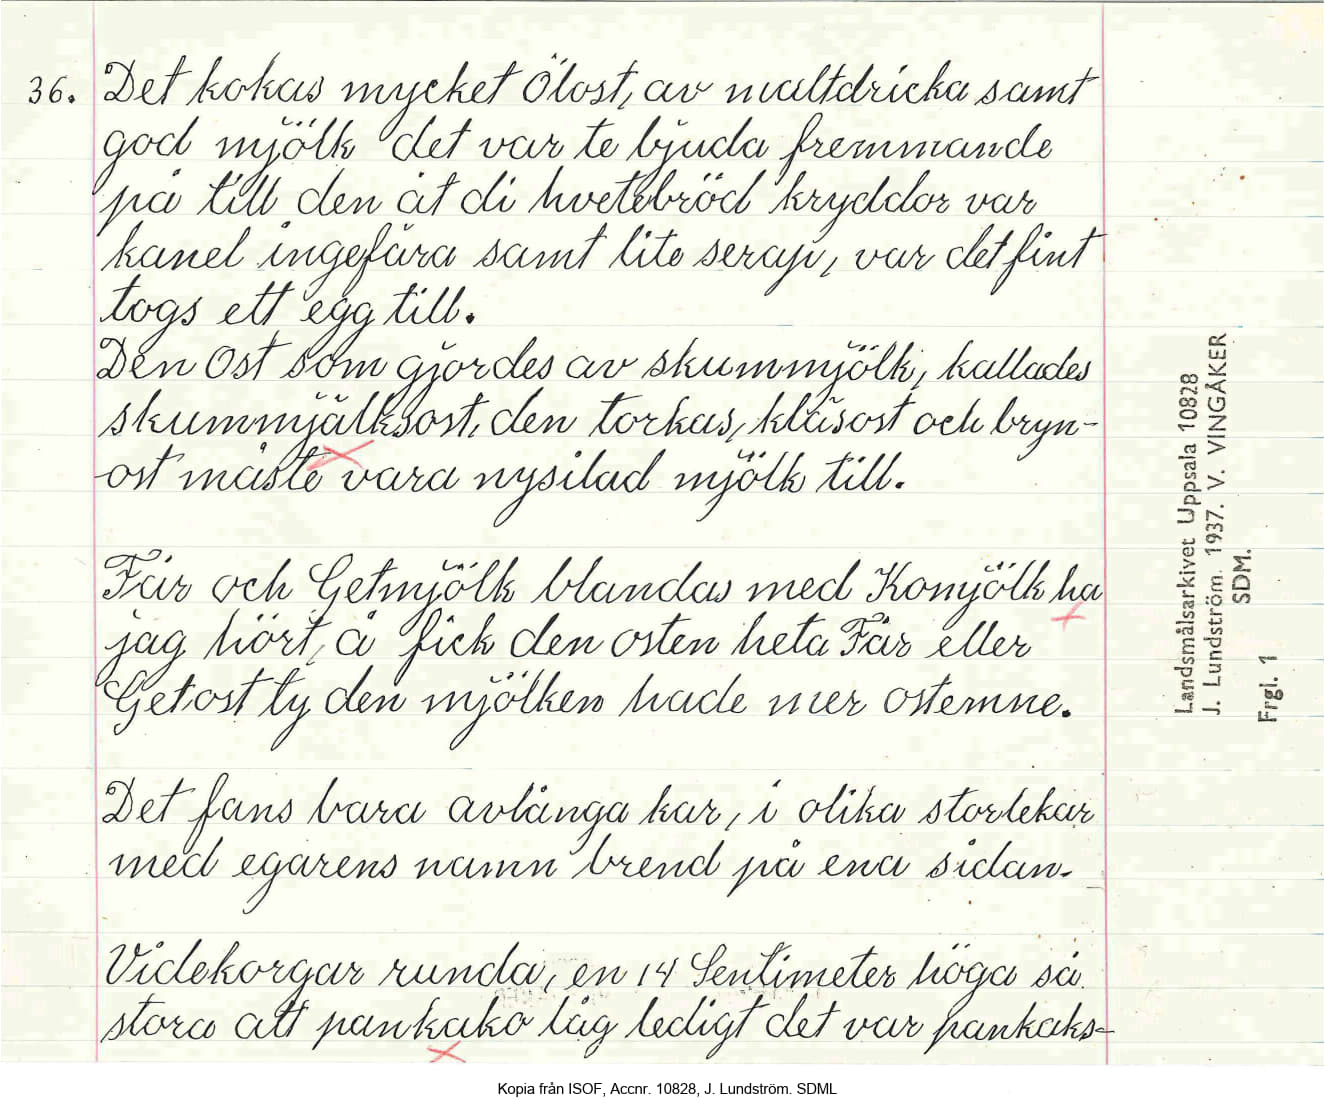 36. Det kokas mycket Ölost, av maltdricka samt
god mjölk det var te bjuda fremmande
på till den åt di hvetebröd kryddor var
kanel ingefära samt lite serap, var det fint
togs ett egg till.
Den Ost som gjordes av skummjölk, kallades
skummjälksost, den torkas, kläsost och bryn-
ost måste vara nysilad mjölk till.
Får och Getmjölk blandas med Komjölk ha
jag hört, å fick den osten heta Får eller
Getost ty den mjölken hade mer ostemne.
Det fans bara avlånga kar, i olika storlekar
med egarens namn brend på ena sidan.
Videkorgar runda, en 14 Sentimeter höga så
stora att pankako låg ledigt det var pankaks=
Landsmålsarkivet Uppsala 10828
J. Lundström. 1937. V. VINGÅKER
SDM.
Frgl. 1
Kopia från ISOF, Accnr. 10828, J. Lundström. SDML